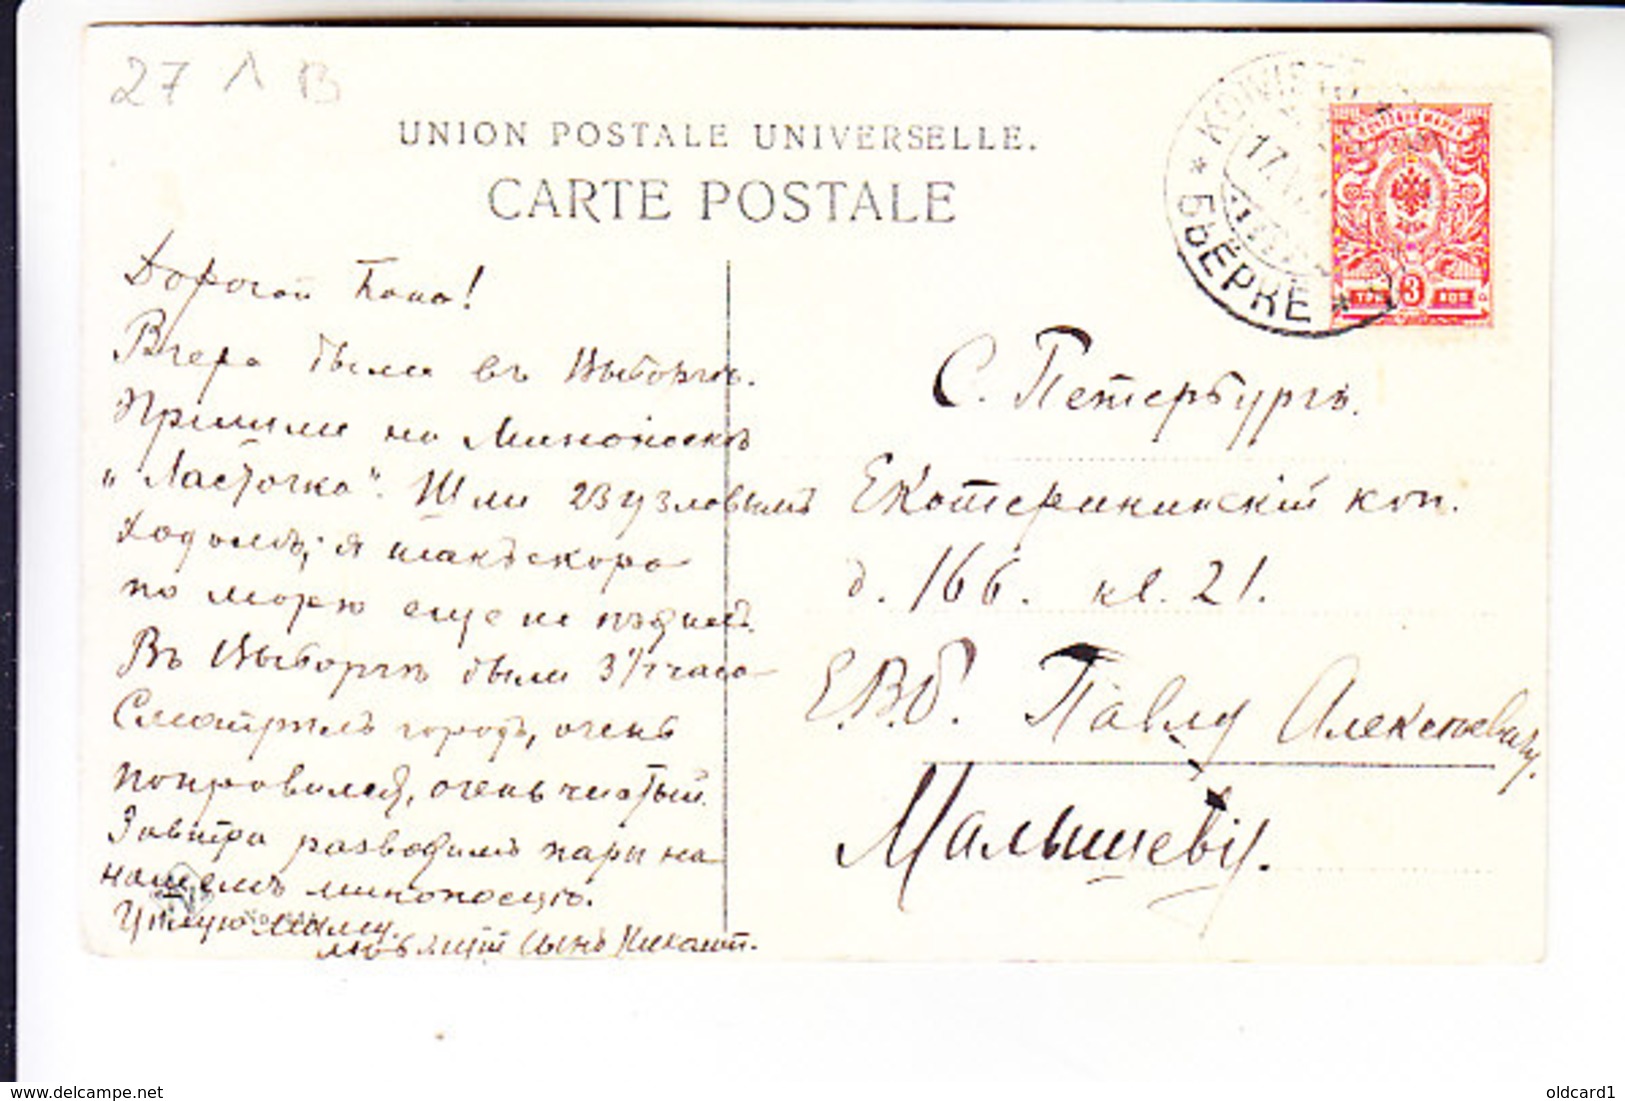 27 Л В
UNION POSTALE UNIVERSELLE.
CARTE POSTALE
KOIWISTO
17.
БЬЁРКЕ
3
Дорогой Папа!
Вчера были въ Выборгѣ.
Пришли на Миноносцѣ
„Ласточка". Шли 23 узловымъ
ходомъ; я такъ скоро
по морю еще не ѣздилъ.
Въ Выборгѣ были 3½ часа
Смотрѣлъ городъ, очень
понравился, очень чистый.
Завтра разводимъ пары на
нашемъ миноносцѣ.
Цѣлую Маму.
любящій Сынъ
С. Петербургъ.
Екатерининскій кан.
д. 166. кв. 21.
Е.В.б. Павлу Алексѣевичу
Малышеву.
oldcard1-delcampe.net
oldcard1